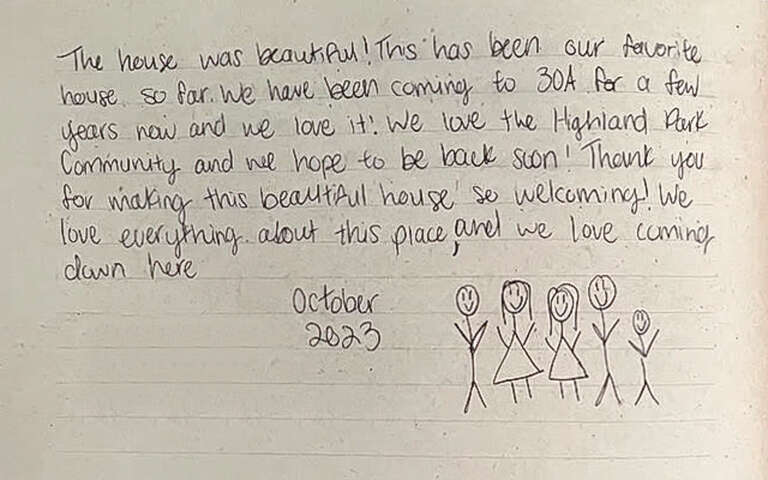 The house was beautiful! This has been our favorite
house so far. We have been coming to 30A for a few
years now and we love it! We love the Highland Park
Community and we hope to be back soon! Thank you
for making this beautiful house so welcoming! We
love everything about this place, and we love coming
down here
October
2023